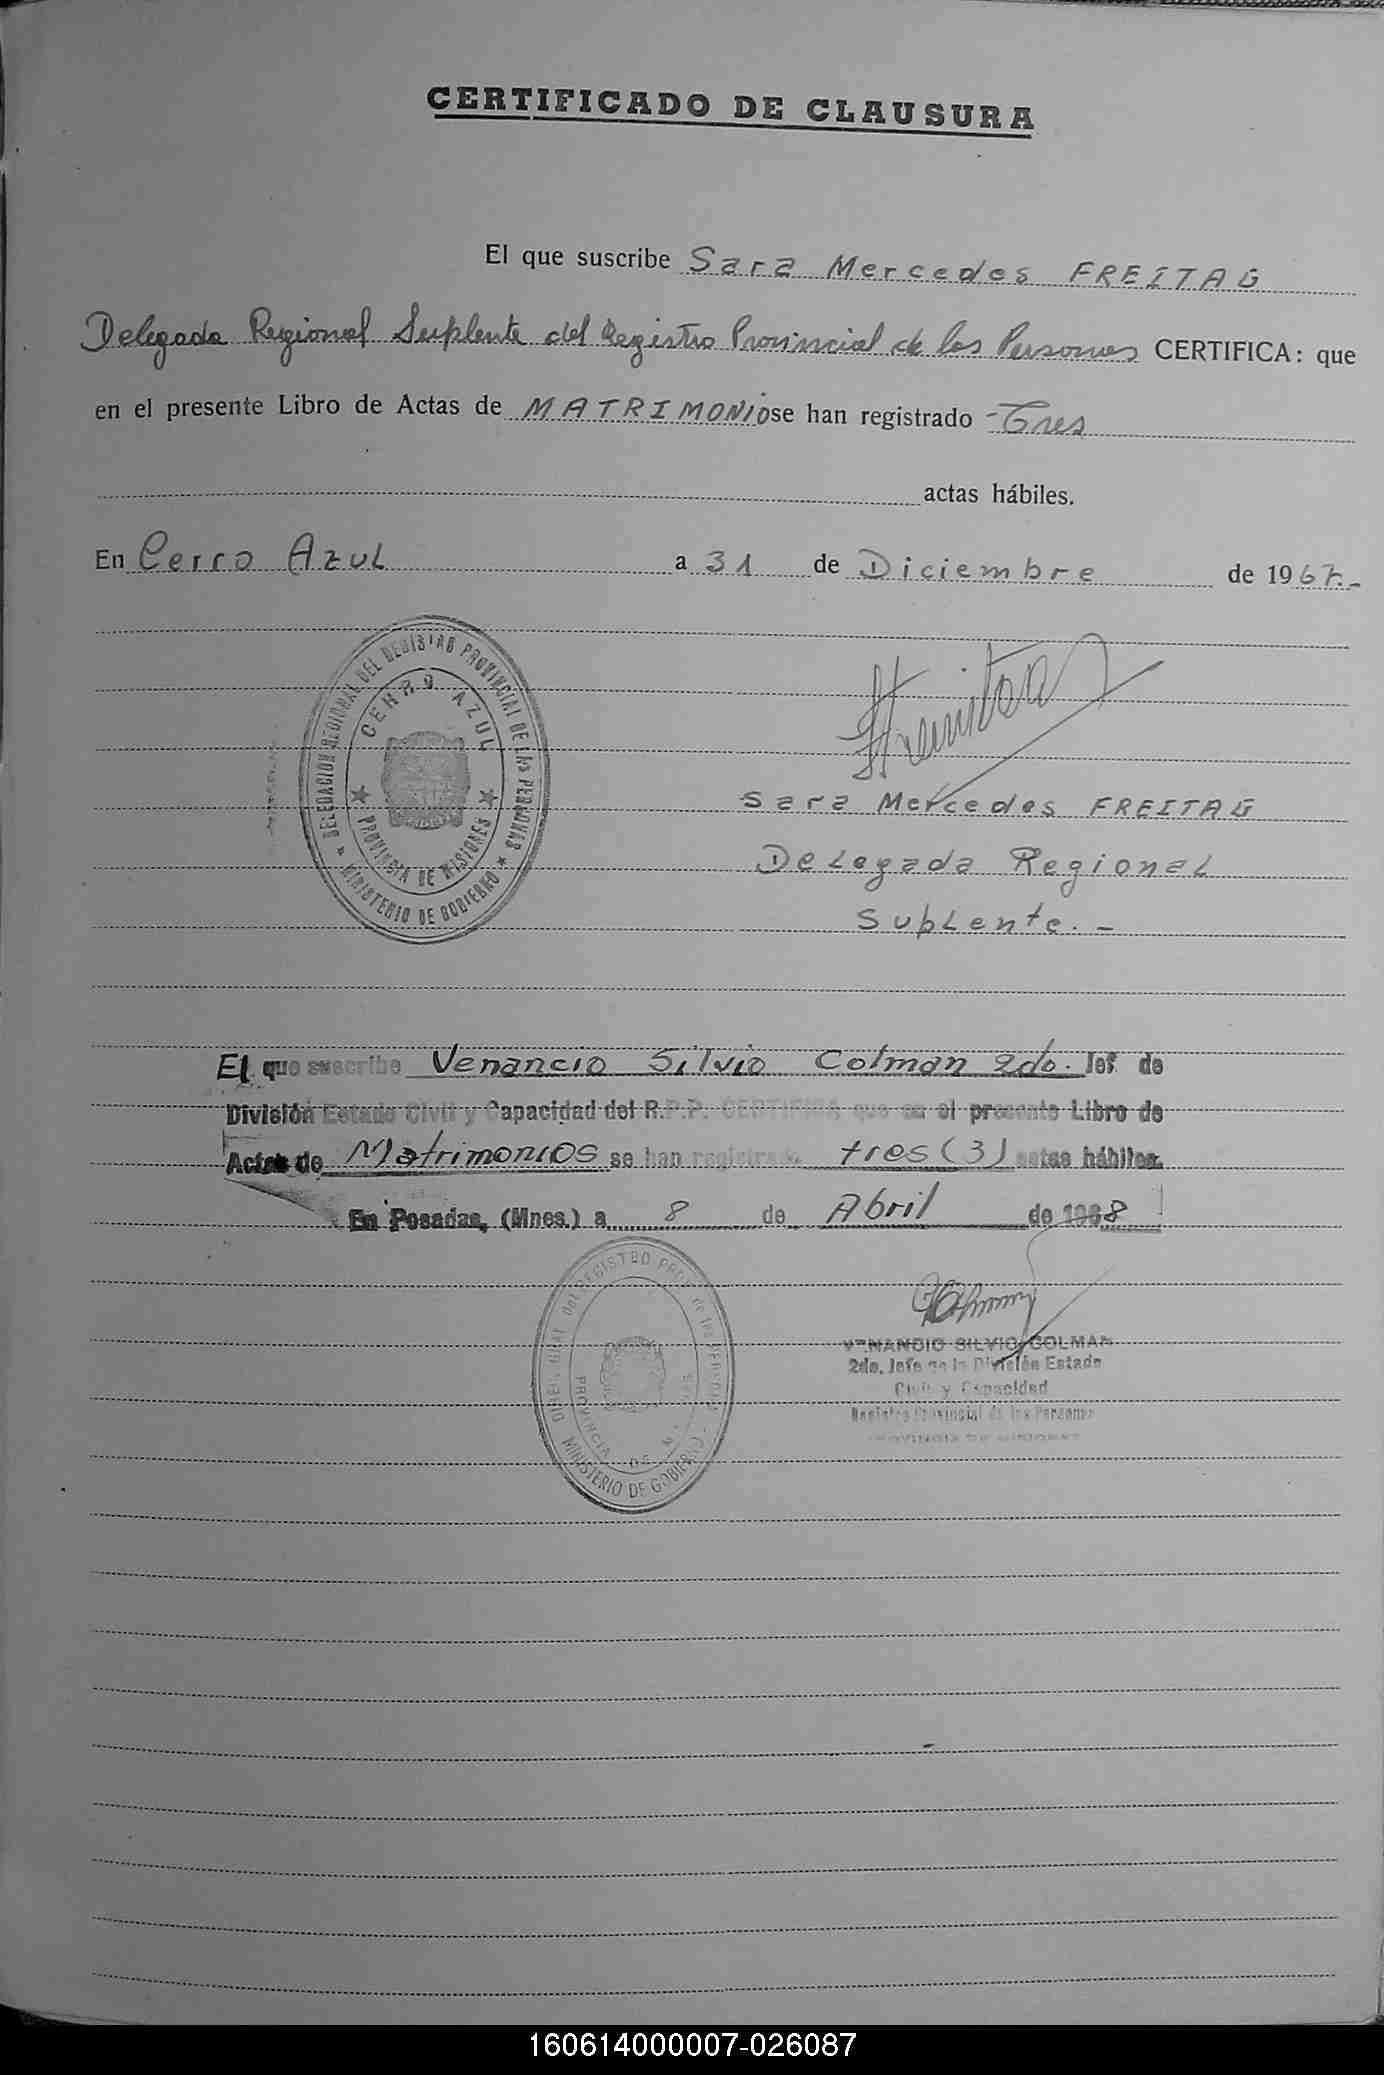 CERTIFICADO DE CLAUSURA
El que suscribe Sara Mercedes FREITAG
Delegada Regional Suplente del Registro Provincial de las Personas CERTIFICA: que
en el presente Libro de Actas de MATRIMONIO se han registrado -Tres
actas hábiles.
En Cerro Azul a 31 de Diciembre de 1967.-
DELEGACION REGIONAL DEL REGISTRO PROVINCIAL DE LAS PERSONAS
CERRO AZUL
PROVINCIA DE MISIONES
MINISTERIO DE GOBIERNO
Sara Mercedes FREITAG
Delegada Regional
Suplente.-
El que suscribe Venancio Silvio Colman 2do. Jef. de
División Estado Civil y Capacidad del R.P.P. CERTIFICA que en el presente Libro de
Actas de Matrimonios se han registrado tres (3) actas hábiles.
En Posadas, (Mnes.) a 8 de Abril de 1968
del REGISTRO PROV. de las PERSONAS
PROVINCIA DE
MINISTERIO DE GOBIERNO
VENANCIO SILVIO COLMAN
2do. Jefe de la División Estado
Civil y Capacidad
Registro Provincial de las Personas
PROVINCIA DE MISIONES
160614000007-026087